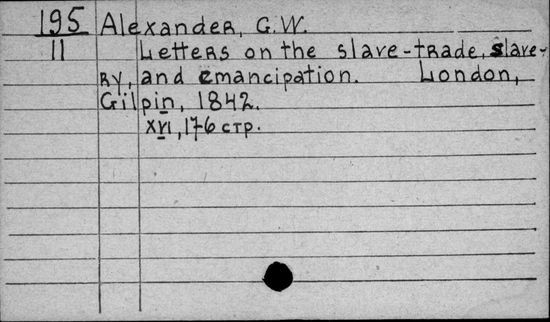 195 Alexander, G.W.
11 Letters on the slave-trade, slave-
ry, and emancipation. London,
Gilpin, 1842.
XVI, 176 стр.